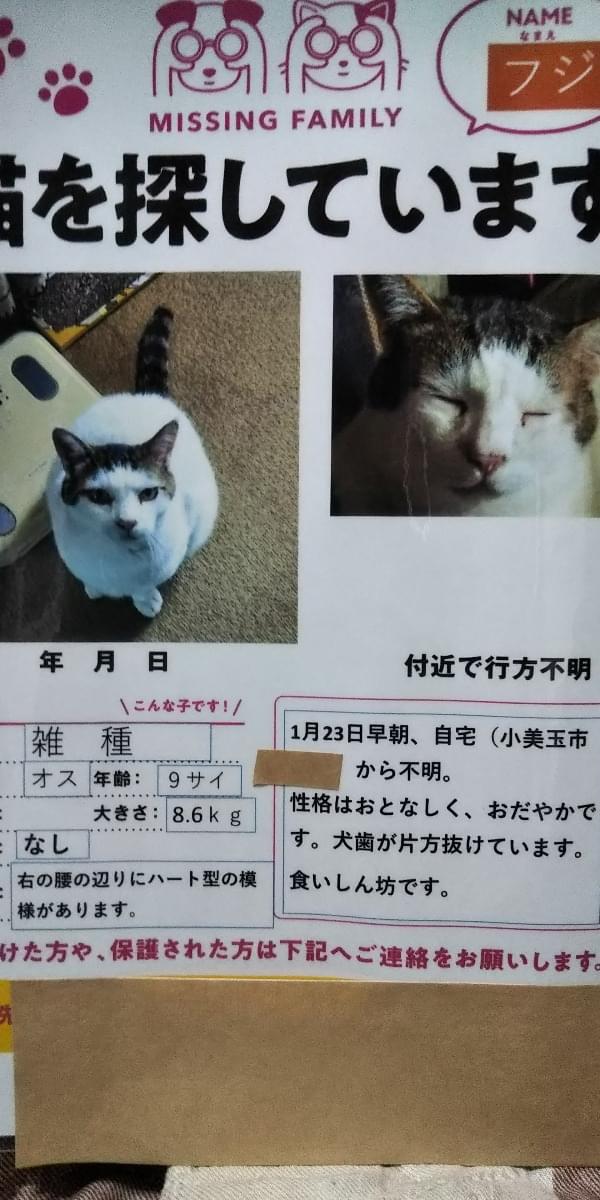 NAME
なまえ
フジ
MISSING FAMILY
猫を探しています
年 月 日
付近で行方不明
\こんな子です！/
雑 種
オス 年齢： 9サイ
大きさ： 8.6kg
なし
右の腰の辺りにハート型の模
様があります。
1月23日早朝、自宅（小美玉市
から不明。
性格はおとなしく、おだやかで
す。犬歯が片方抜けています。
食いしん坊です。
けた方や、保護された方は下記へご連絡をお願いします。